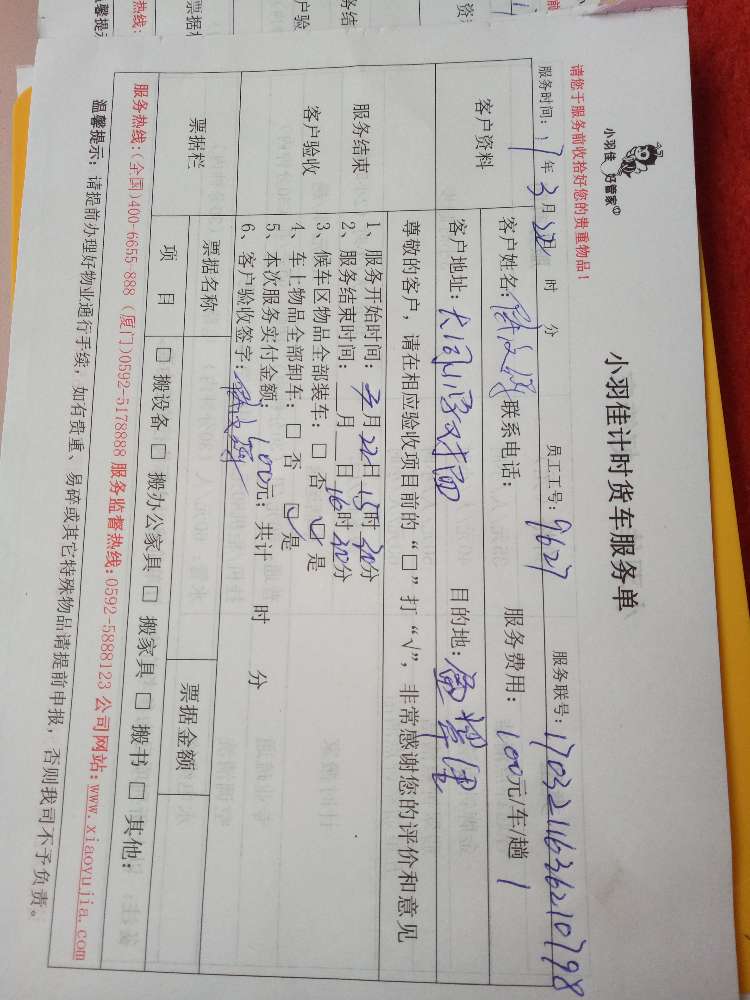 小羽佳 好管家
小羽佳计时货车服务单
请您于服务前收拾好您的贵重物品！
服务时间：17年3月22 时 分 员工工号：9627 服务联号：1703211636210798
客户资料
客户姓名： 联系电话： 服务费用：100元/车/趟 1
客户地址：大同小学对面 目的地：
尊敬的客户，请在相应验收项目前的“□”打“√”，非常感谢您的评价和意见
服务结束
客户验收
1、服务开始时间：3月22日15时30分
2、服务结束时间：__月__日16时30分
3、候车区物品全部装车：□ 否 ☑ 是
4、车上物品全部卸车：□ 否 ☑ 是
5、本次服务实付金额：100元；共计 时 分
6、客户验收签字：
票据栏
票据名称 票据金额
项 目 □ 搬设备 □ 搬办公家具 □ 搬家具 □ 搬书 □ 其他：
服务热线：（全国）400-6655-888（厦门）0592-5178888 服务监督热线：0592-5888123 公司网站：www.xiaoyujia.com
温馨提示：请提前办理好物业通行手续，如有贵重、易碎或其它特殊物品请提前申报，否则我司不予负责。